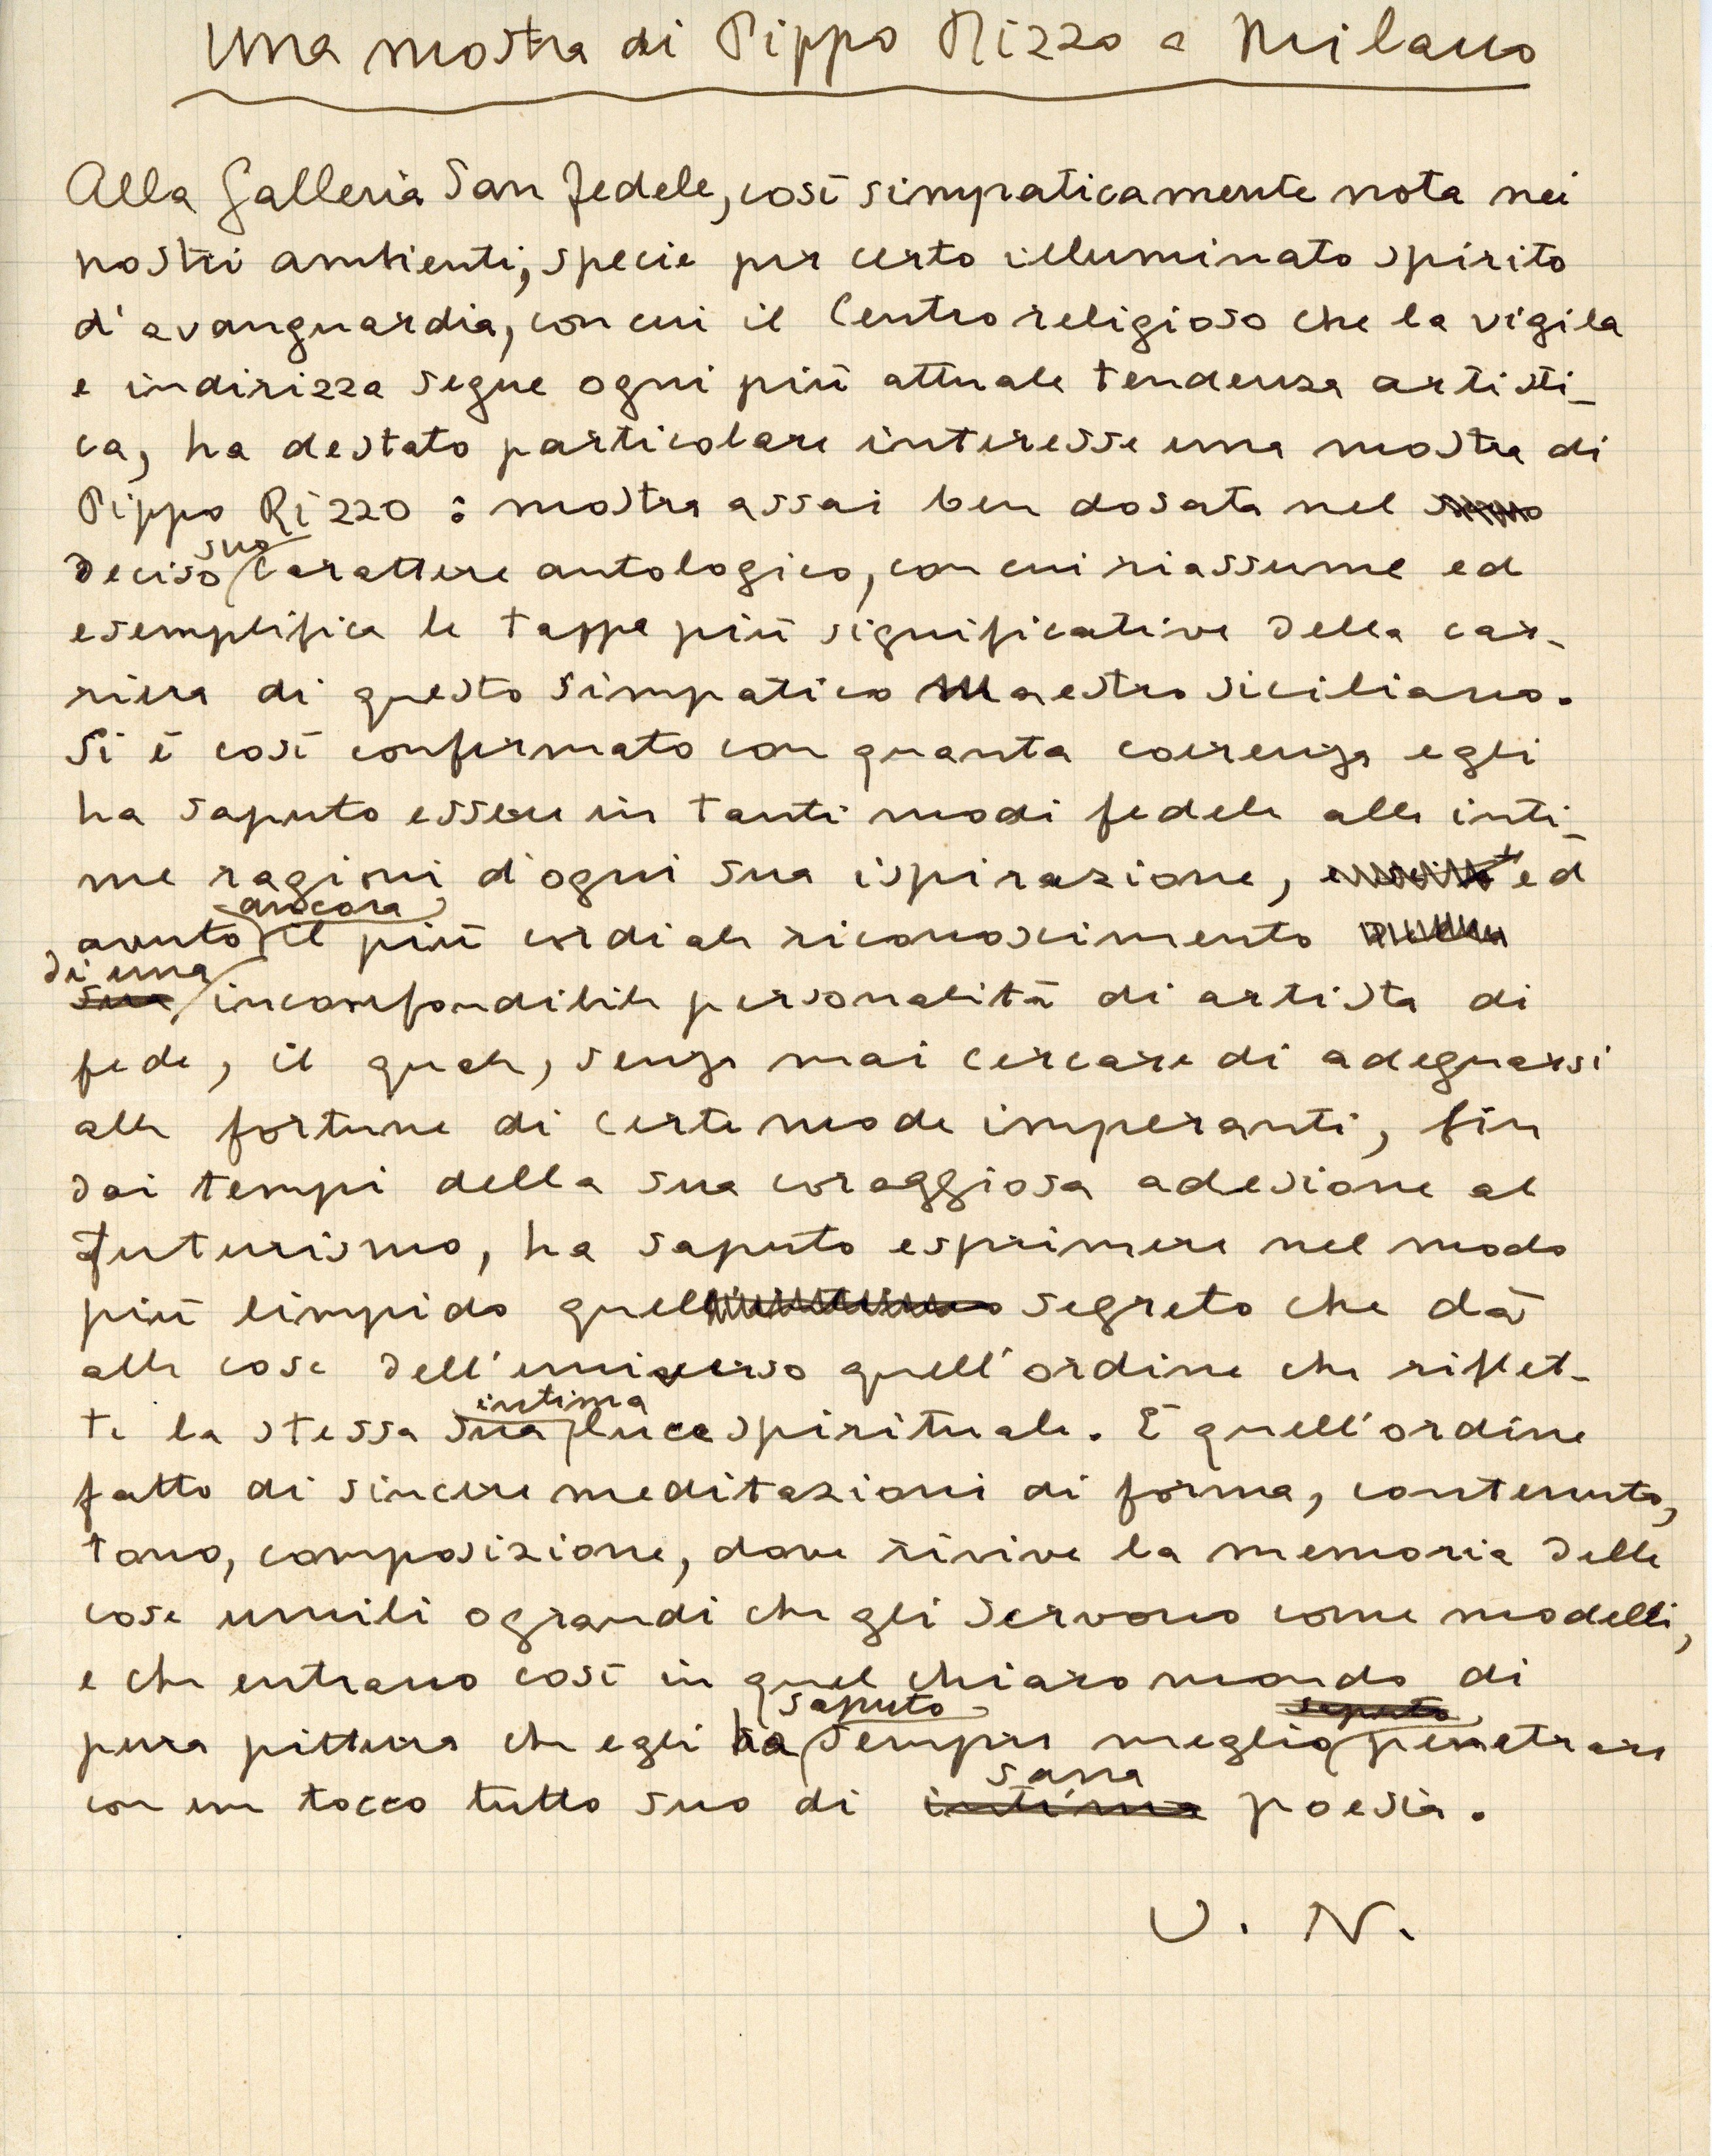 Una mostra di Pippo Rizzo a Milano
Alla Galleria San Fedele, così simpaticamente nota nei
nostri ambienti, specie per certo illuminato spirito
d'avanguardia, con cui il Centro religioso che la vigila
e indirizza segue ogni più attuale tendenza artisti-
ca, ha destato particolare interesse una mostra di
Pippo Rizzo: mostra assai ben dosata nel
suo
deciso carattere antologico, con cui riassume ed
esemplifica le tappe più significative della car-
riera di questo simpatico Maestro siciliano.
Si è così confermato con quanta coerenza egli
ha saputo essere in tanti modi fedele alle inti-
me ragioni d'ogni sua ispirazione, ed
ancora
avuto il più cordiale riconoscimento
di una
sua incomfondibile personalità di artista di
fede, il quale, senza mai cercare di adeguarsi
alle fortune di certe mode imperanti, fin
dai tempi della sua coraggiosa adesione al
Futurismo, ha saputo esprimere nel modo
più limpido quel segreto che dà
alle cose dell'universo quell'ordine che riflet-
intima
te la stessa sua luce spirituale. È quell'ordine
fatto di sincere meditazioni di forma, contenuto,
tono, composizione, dove rivive la memoria delle
cose umili o grandi che gli servono come modelli,
e che entrano così in quel chiaro mondo di
saputo saputo
pura pittura che egli ha sempre meglio penetrare
sana
con un tocco tutto suo di intima poesia.
U. N.